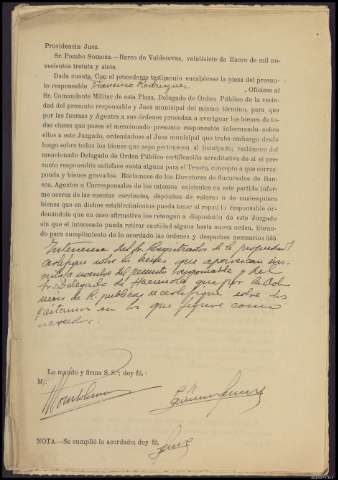 Providencia Juez
Sr. Pombo Somoza.—Barco de Valdeorras, veintisiete de Enero de mil no-
vecientos treinta y siete.
Dada cuenta. Con el precedente testimonio encabécese la pieza del presun-
to responsable Francisco Rodriguez . Ofíciese al
Sr. Comandante Militar de esta Plaza, Delegado de Orden Público de la vecin-
dad del presunto responsable y Juez municipal del mismo término, para que
por las fuerzas y Agentes a sus órdenes procedan a averiguar los bienes de to-
das clases que posea el mencionado presunto responsable informando sobre
ellos a este Juzgado, ordenándose al Juez municipal que trabe embargo desde
luego sobre todos los bienes que sepa pertenecen al inculpado; reclámese del
mencionado Delegado de Orden Público certificación acreditativa de si el pre-
sunto responsable satisface cuota alguna para el Tesoro, concepto a que corres-
ponda y bienes gravados. Reclámese de los Directores de Sucursales de Ban-
cos, Agentes o Corresponsales de los mismos existentes en este partido infor-
me acerca de las cuentas corrientes, depósitos de valores o de cualesquiera
bienes que en dichos establecimientos pueda tener el repetido responsable or-
denándole que en caso afirmativo los retengan a disposición de este Juzgado
sin que el interesado pueda retirar cantidad alguna hasta nueva orden, libran-
do para cumplimiento de lo acordado las órdenes y despachos necesarios.
Interésese del Sr. Registrador de la propiedad
certifique sobre los bienes que aparezcan ins-
critos a nombre del presunto responsable y del
Sr. Delegado de Hacienda que por la
de R. públicas se certifique sobre los
en los que figure como
Lo mandó y firma S. S.ª; doy fé.
M/
NOTA.—Se cumplió lo acordado; doy fé.